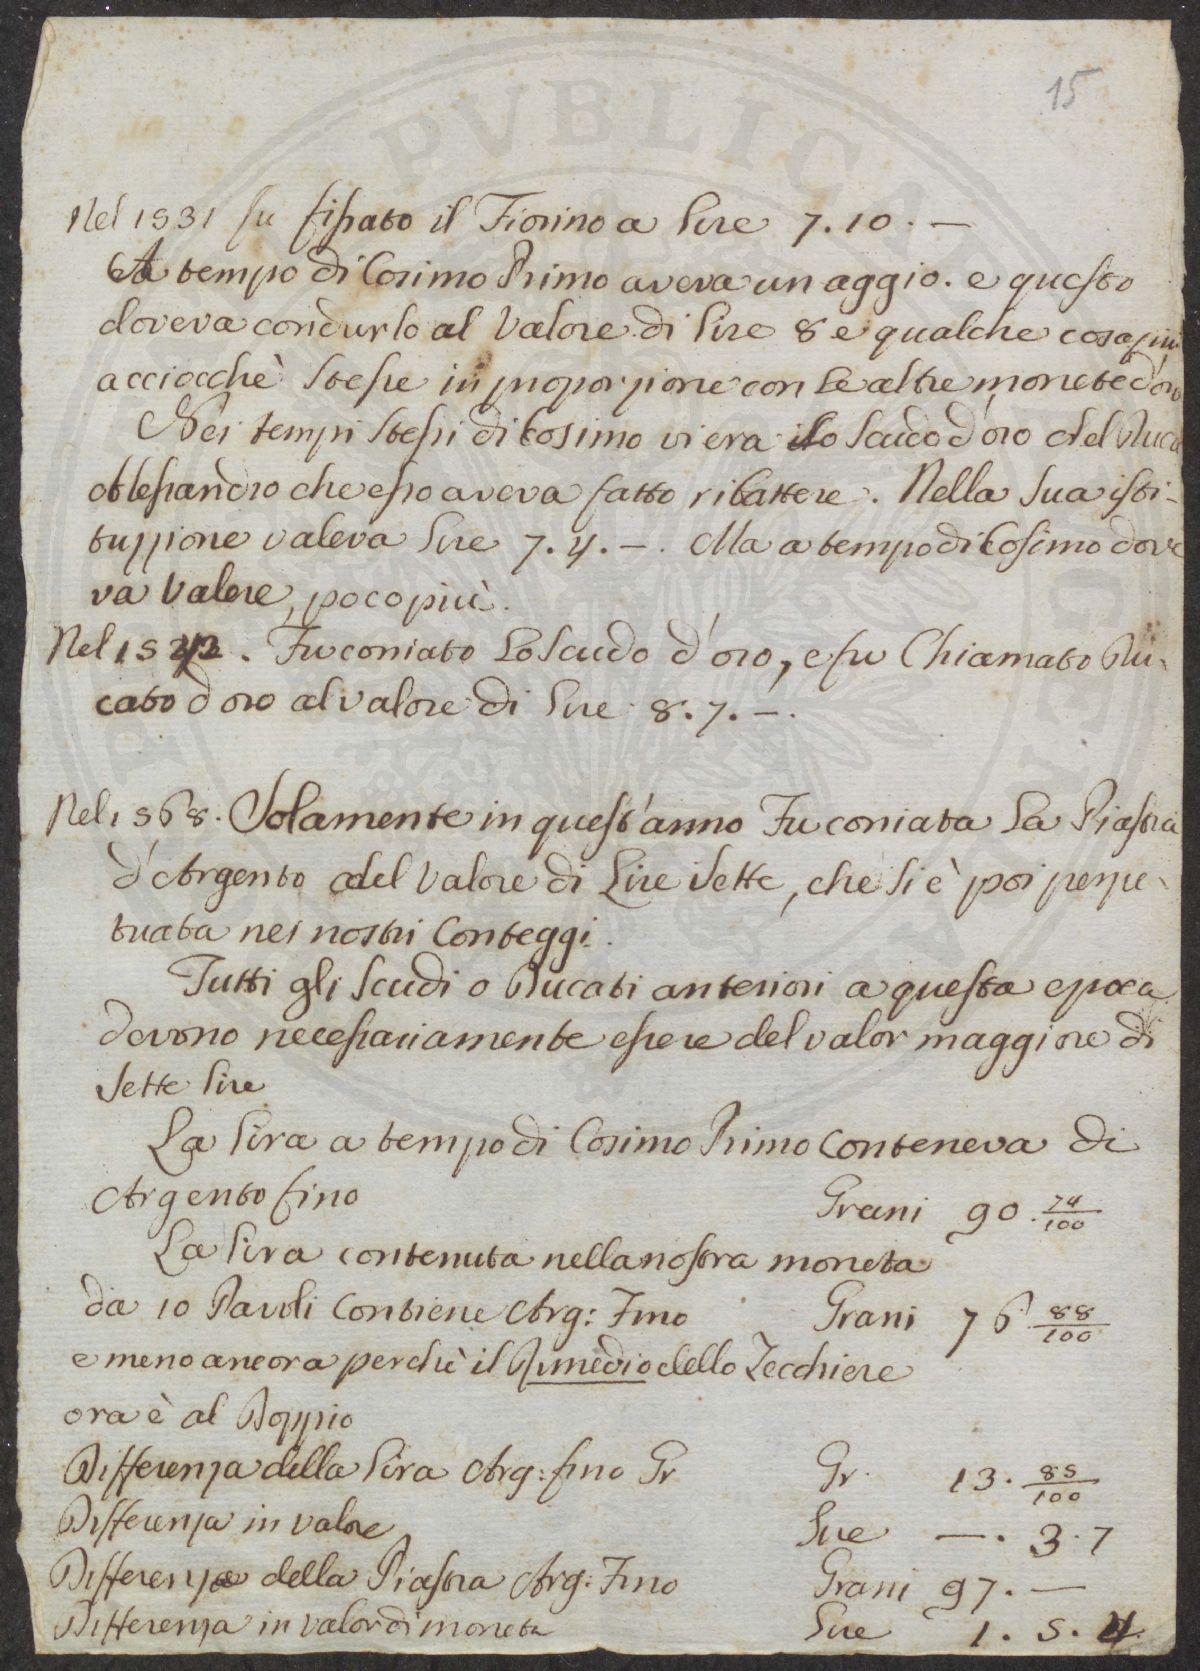 15
Nel 1531 fu fissato il Fiorino a Lire 7.10.—
A tempo di Cosimo Primo aveva un aggio. e questo
doveva condurlo al Valore di Lire 8 e qualche cosa più
acciocchè stesse in proporzione con le altre monete d'oro
Nei tempi stessi di Cosimo vi era lo Scudo d'oro del Duca
Alessandro che esso aveva fatto ribattere. Nella sua isti-
tuzzione valeva Lire 7.4.—. Ma a tempo di Cosimo dove
va Valere, poco più.
Nel 1542. Fu coniato Lo Scudo d'oro, e fu Chiamato Du-
cato d'oro al valore di Lire 8.7.—.
Nel 1568. Solamente in quest'anno Fu coniata La Piastra
d'Argento del Valore di Lire Sette, che si è poi perpe-
tuata nei nostri Conteggi.
Tutti gli Scudi o Ducati anteriori a questa epoca
devono necessariamente essere del valor maggiore di
Sette Lire
La Lira a tempo di Cosimo Primo conteneva di
Argento fino Grani 90. 74/100
La Lira contenuta nella nostra moneta
da 10 Pavoli Contiene Arg: Fino Grani 76 88/100
e meno ancora perchè il Rimedio dello Zecchiere
ora è al Doppio
Differenza della Lira Arg: fino Gr Gr. 13. 85/100
Differenza in valore Lire —. 3.7
Differenza della Piastra Arg: Fino Grani 97.—
Differenza in valor di moneta Lire 1. 5. 4.
PVBLICA